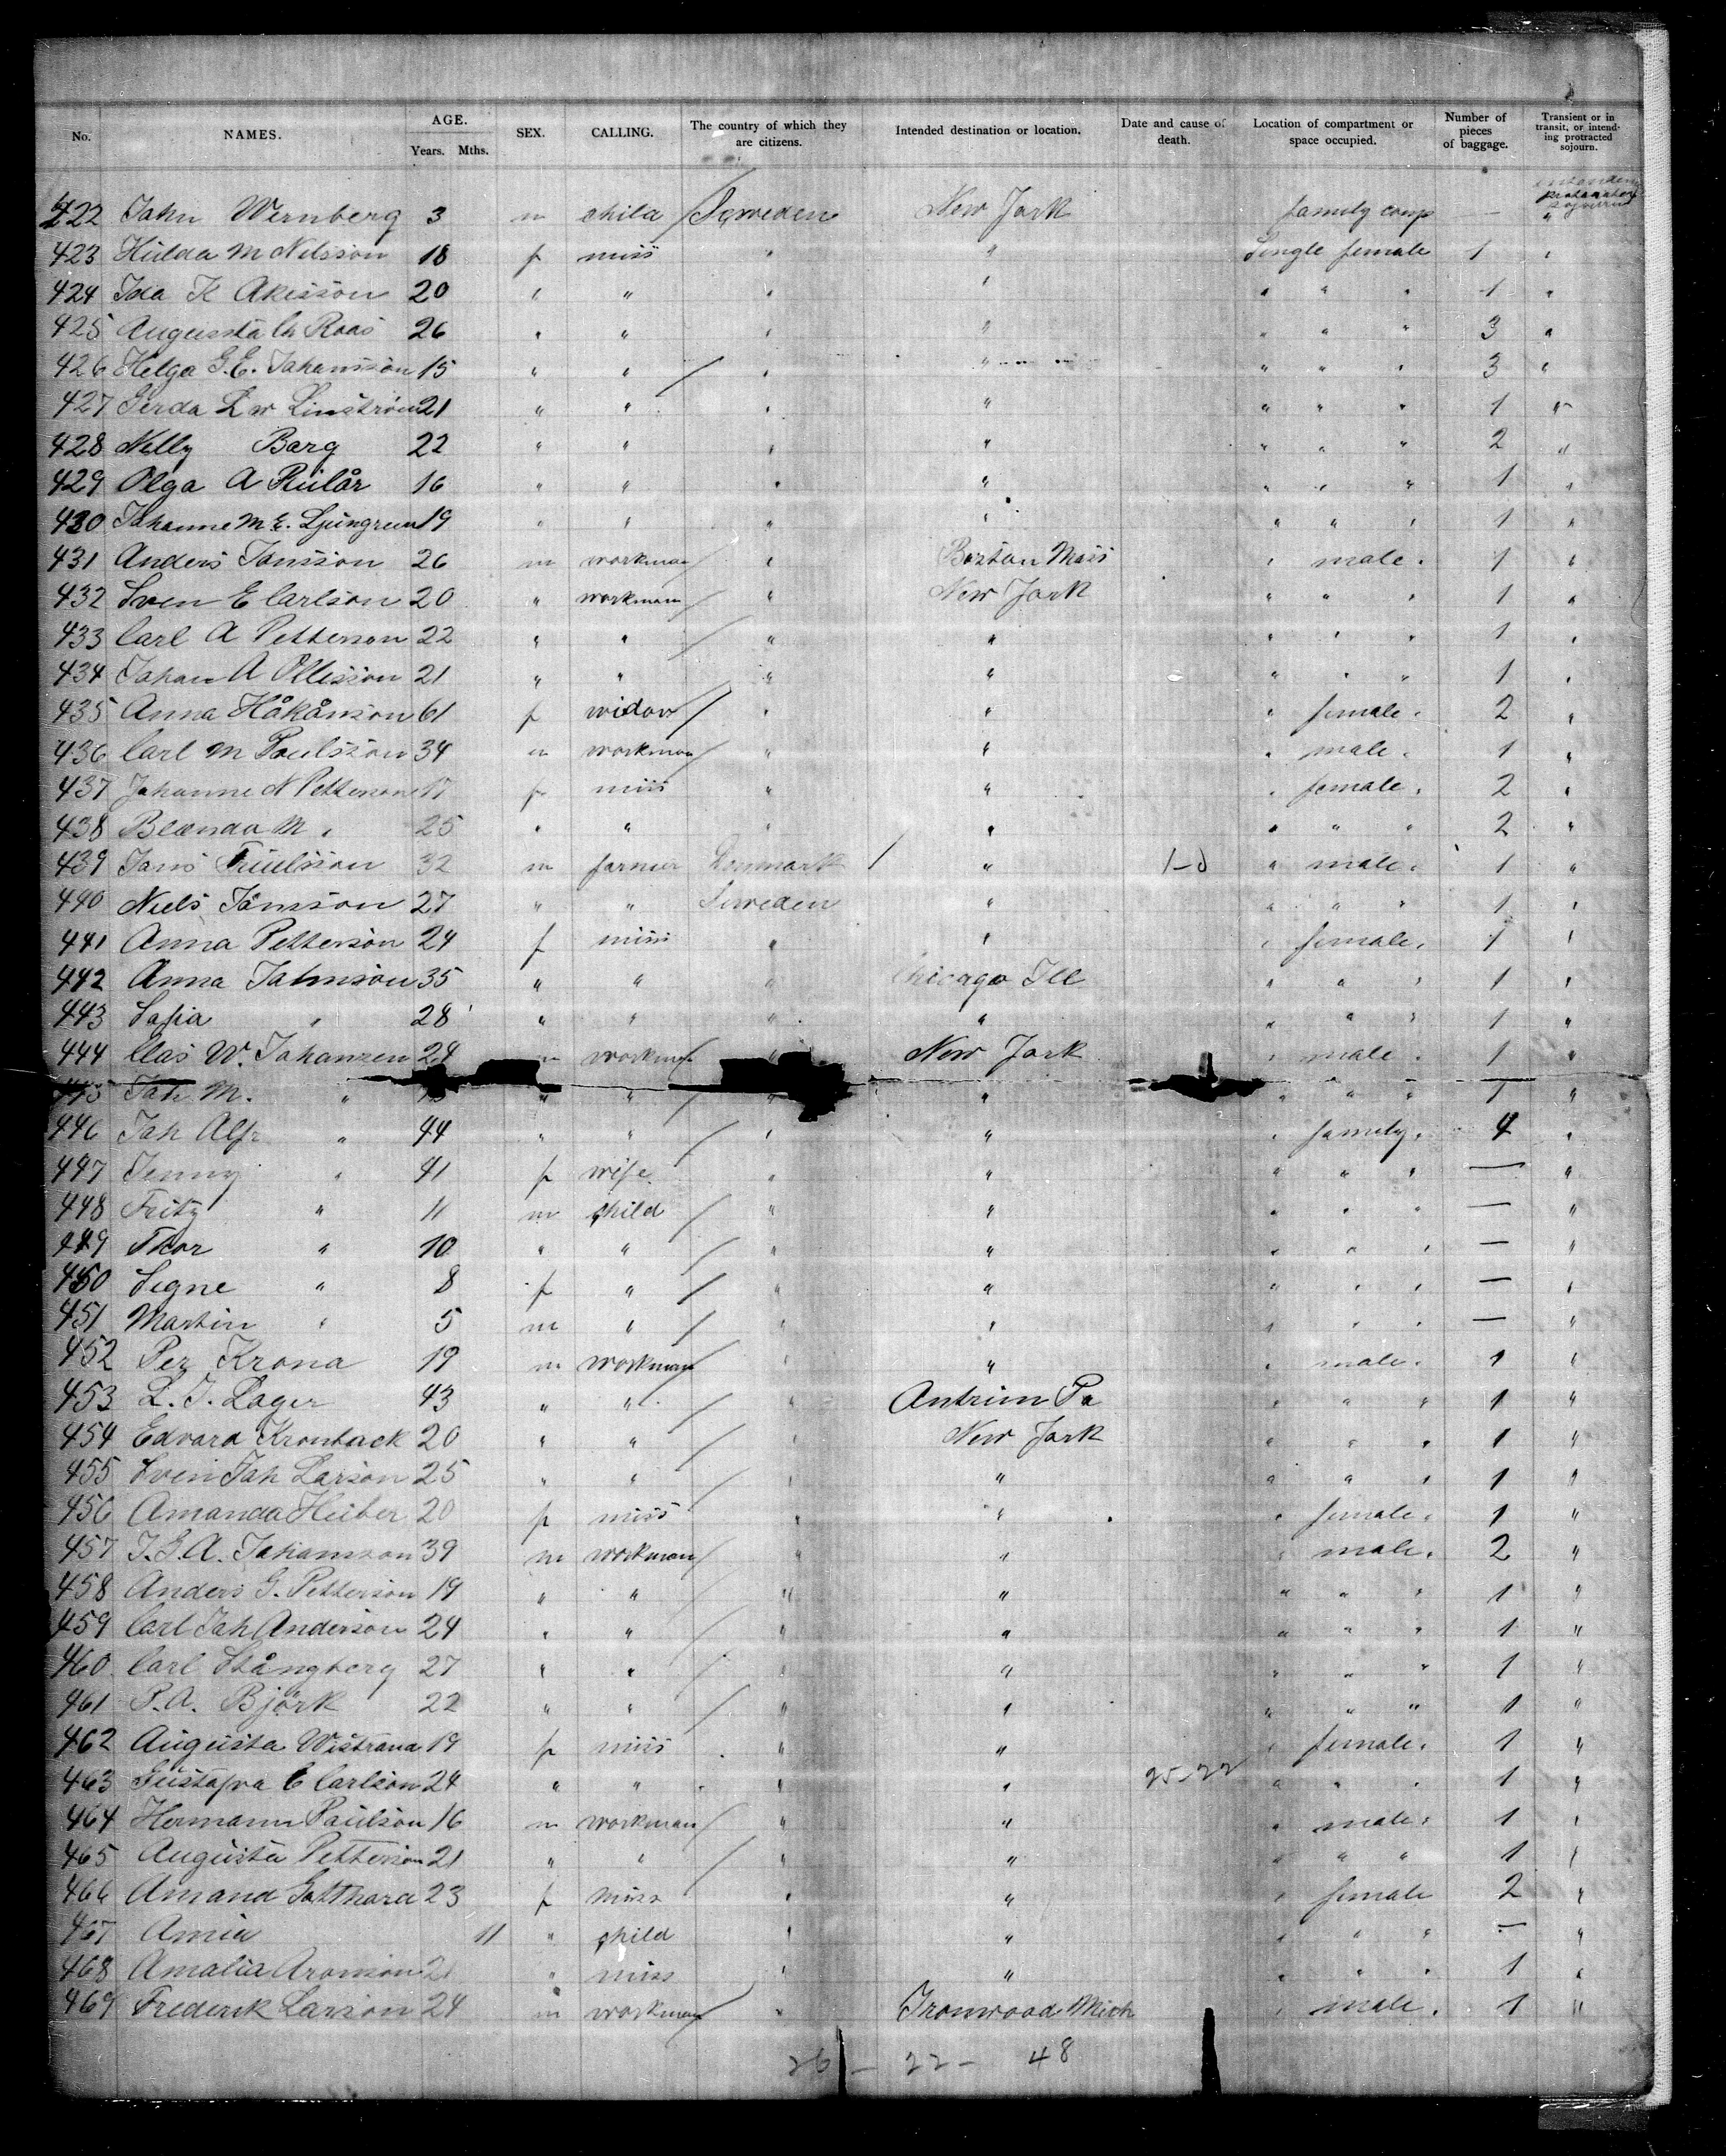 No. NAMES. AGE. Years. Mths. SEX. CALLING. The country of which they are citizens. Intended destination or location. Date and cause of death. Location of compartment or space occupied. Number of pieces of baggage. Transient or in transit, or intending protracted sojourn.
422 John Wernberg 3 m child Sweden New York family comp — "
423 Hulda M Nilsson 18 f miss " " Single female 1 "
424 Ida K Akesson 20 " " " " " " " 1 "
425 Augusta Ch Roos 26 " " " " " " " 3 "
426 Helga G. E. Johansson 15 " " " " " " " 3 "
427 Gerda L W Linström 21 " " " " " " " 1 "
428 Nelly Berg 22 " " " " " " " 2 "
429 Olga A 16 " " " " " " " 1 "
430 Johanne M E. Ljungreen 19 " " " " " " " 1 "
431 Anders Jonsson 26 m workman " Boston Mass " male " 1 "
432 Sven E Carlson 20 " workman " New York " " " 1 "
433 Carl A Petterson 22 " " " " " " " 1 "
434 Johan A Ollesson 21 " " " " " " " 1 "
435 Anna Håkånson 61 f widow " " " female " 2 "
436 Carl M Poulsson 34 m workman " " " male " 1 "
437 Johanne N Petterson 17 f miss " " " female " 2 "
438 Blenda M " 25 " " " " " " " 2 "
439 Jons Truelsson 32 m farmer Denmark " 1-0 " male " 1 "
440 Niels Jönsson 27 " " Sweden " " " " 1 "
441 Anna Petterson 24 f miss " " " female " 1 "
442 Anna Johnson 35 " " " Chicago Ill " " " 1 "
443 Sofia " 28 " " " " " " " 1 "
444 Clas W. Johanzen 24 m workman " New York " male " 1 "
445 Joh M. " " " " " " " 1 "
446 Joh Alfr " 44 " " " " " family " 4 "
447 Jenny " 41 f wife " " " " " — "
448 Fritz " 11 m child " " " " " — "
449 Thor " 10 " " " " " " " — "
450 Signe " 8 f " " " " " " — "
451 Martin " 5 m " " " " " " — "
452 Per Krona 19 m workman " " " male " 1 "
453 L. J. Lager 43 " " " Antrim Pa " " " 1 "
454 Edvard Kronback 20 " " " New York " " " 1 "
455 Sven Joh Larson 25 " " " " " " " 1 "
456 Amanda Heiber 20 f miss " " " female " 1 "
457 J. G. A. Johansson 39 m workman " " " male " 2 "
458 Anders G. Petterson 19 " " " " " " " 1 "
459 Carl Joh Anderson 24 " " " " " " " 1 "
460 Carl Stångberg 27 " " " " " " " 1 "
461 P. A. Björk 22 " " " " " " " 1 "
462 Augusta Wistrand 19 f miss " " " female " 1 "
463 Gustafva E Carlson 24 " " " " 25-22 " " " 1 "
464 Hermann Paulson 16 m workman " " " male " 1 "
465 Augusta Petterson 21 " " " " " " " 1 "
466 Amand Gotthard 23 f miss " " " female 2 "
467 11 " child " " " " " — "
468 Amalia Aronson 21 " miss " " " " " 1 "
469 Frederik Larson 24 m workman " Ironwood Mich " male " 1 "
26 - 22 - 48